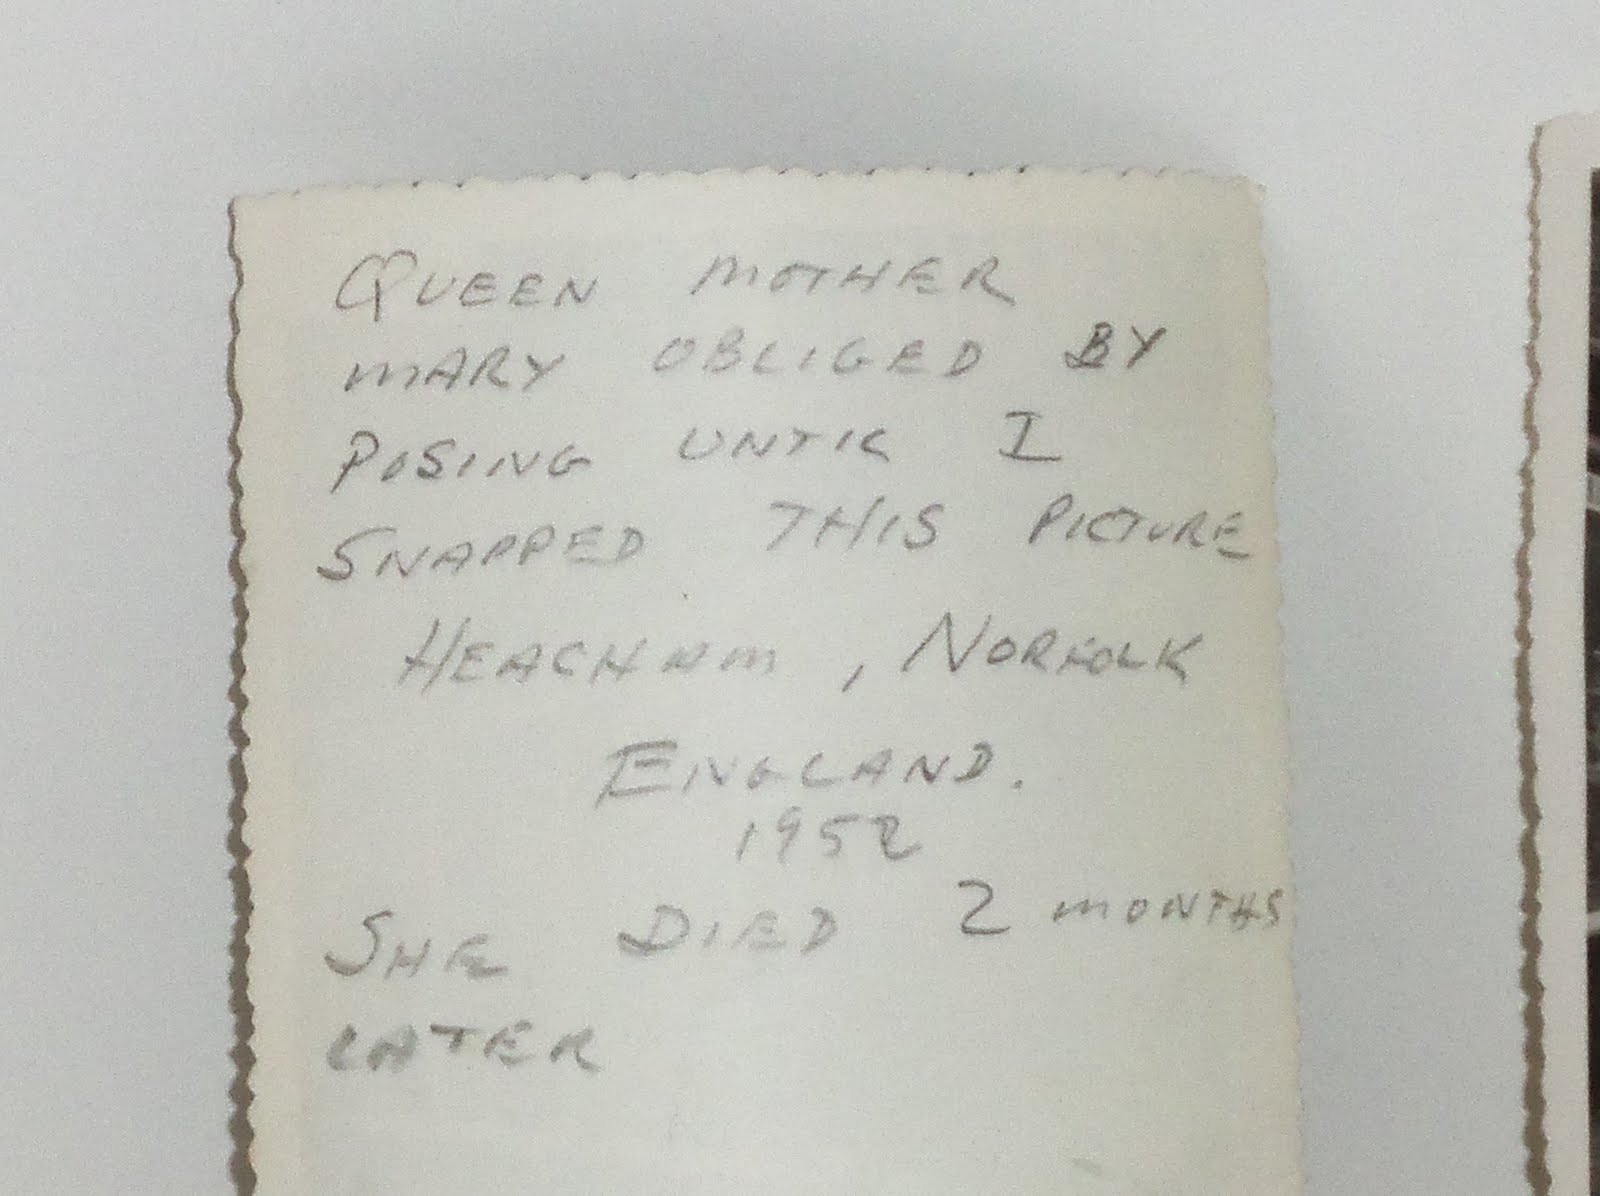 QUEEN MOTHER
MARY OBLIGED BY
POSING UNTIL I
SNAPPED THIS PICTURE
HEACHAM, NORFOLK
ENGLAND.
1952
SHE DIED 2 MONTHS
LATER